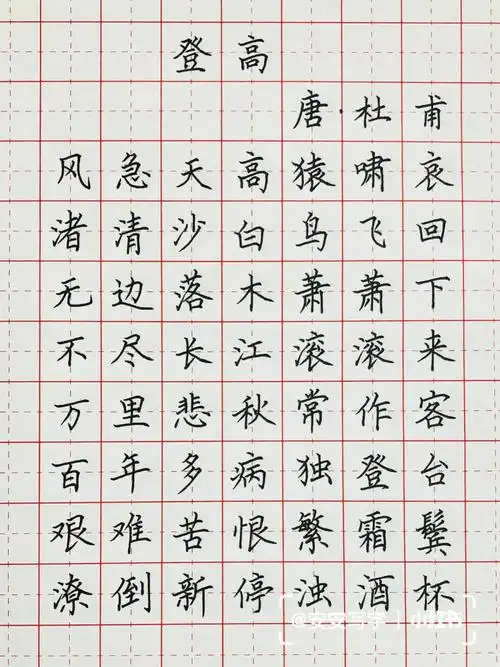 登高
唐·杜甫
风急天高猿啸哀
渚清沙白鸟飞回
无边落木萧萧下
不尽长江滚滚来
万里悲秋常作客
百年多病独登台
艰难苦恨繁霜鬓
潦倒新停浊酒杯
@安安写字